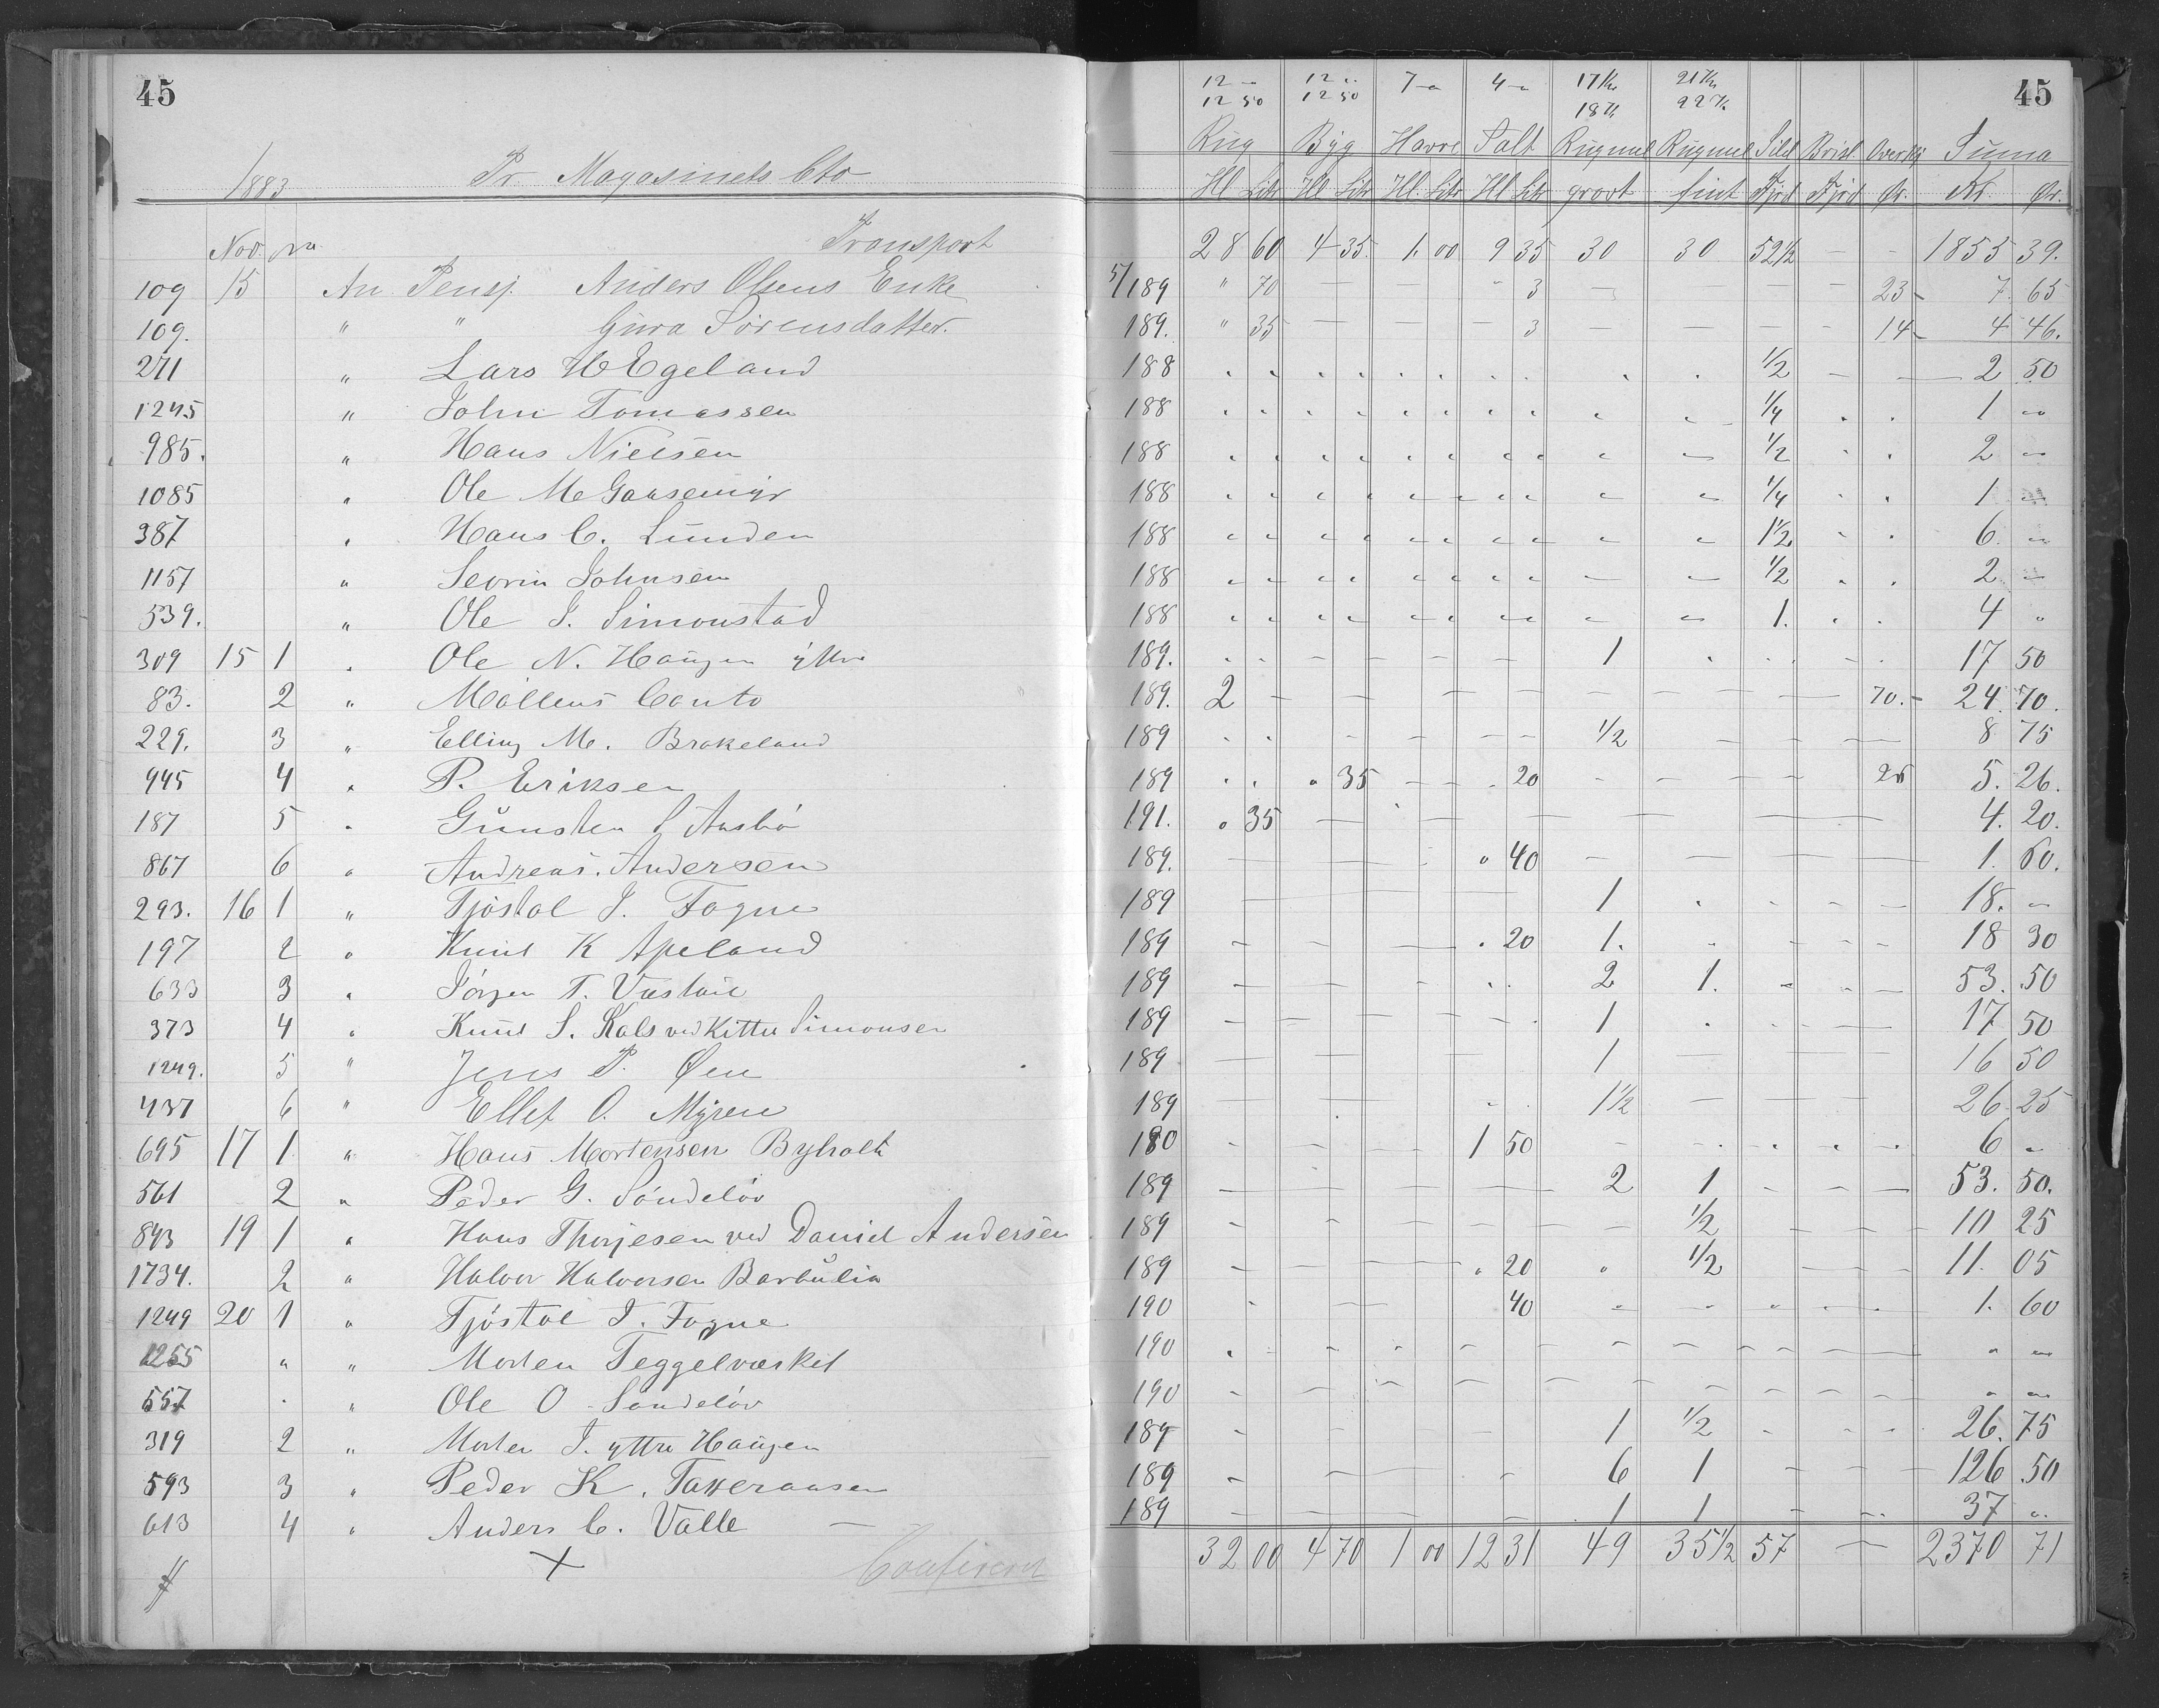 45
1883 Pr Magasinets Cto
Nov. Transport
109 15 An Pensj. Anders Olsens Enke
109. " " Gura Sørensdatter.
271 " Lars H Egeland
1245 " John Tomassen
985. " Hans Nielsen
1085 " Ole M Gaasemyr
387 " Hans C. Lunden
1157 " Sevrin Johnsen
539. " Ole J. Simonstad
309 15 1 " Ole N. Haugen yttre
83. 2 " Møllens Conto
229. 3 " Elling M. Brakeland
945 4 " P. Eriksen
187 5 " Gunsten
867 6 " Andreas Andersen
293. 16 1 " Tjøstol J. Fogne
197 2 " Knud K Apeland
633 3 " Jørgen T.
373 4 " Knud S. Kals ved Kittil Simonsen
1249. 5 " Jens P. Øen
437 6 " Ellef O. Myren
695 17 1 " Hans Mortensen Byholt
561 2 " Peder G. Søndeløv
843 19 1 " Hans Thorjesen ved Daniel Andersen
1734. 2 " Halvor Halvorsen Barbulia
1249 20 1 " Tjøstol J. Fogne
1255 " " Morten Teggelværket
557 " Ole O Søndeløv
319 2 " Morten J. yttre Haugen
593 3 " Peder K. Taxeraasen
613 4 " Anders C. Valle
Confirert
45
12 - 12 .. 7 - 4 - 17 Kr 21 Kr
12 50 12 50 18 Kr 22 Kr
Rug Byg Havre Salt Rugmel Rugmel Sild Brisl Overkj Suma
Hl Litr Hl Litr Hl. Litr Hl Litr grovt fint Fjrd Fjrd Ør. Kr. Ør.
28 60 4 35 1. 00 9 35 30 30 52 1/2 - - 1855 39.
5/189 " 70 3 23 - 7. 65
189. " 35 3 14 - 4 46.
188 1/2 2 50
188 1/4 1 "
188 1/2 2 "
188 1/4 1 "
188 1 1/2 6 "
188 1/2 2 "
188 1. 4 "
189. 1 17 50
189. 2 70. - 24. 70.
189 1/2 8 75
189 35 20 26 5. 26.
191. 35 4. 20.
189. 40 1. 60.
189 1 18. "
189 20 1. 18 30
189 2 1. 53. 50
189 1 17 50
189 1 16 50
189 1 1/2 26. 25
180 1 50 6 "
189 2 1 53. 50.
189 1/2 10 25
189 20 1/2 11. 05
190 40 1. 60
190
190
189 1 1/2 26. 75
189 6 1 126 50
189 1 1 37 "
32 00 4 70 1 00 12 31 49 35 1/2 57 - 2370 71